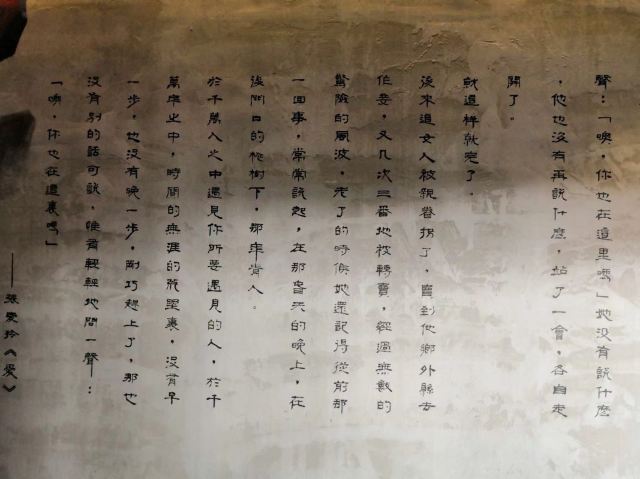 聲:「噢,你也在這里嗎」她没有說什麽
,他也沒有再說什麽,站了一會,各自走
開了。
就這樣就完了。
後來這女人被親眷拐了,賣到他鄉外縣去
作妾,又几次三番地被轉賣,經過無數的
驚險的風波,老了的時候她還記得從前那
一回事,常常說起,在那春天的晚上,在
後門口的桃樹下,那年青人。
於千萬人之中遇見你所要遇見的人,於千
萬年之中,時間的無涯的荒野裏,沒有早
一步,也沒有晚一步,剛巧趕上了,那也
沒有別的話可說,唯有輕輕地問一聲:
「噢,你也在這裏嗎」
——張愛玲《愛》